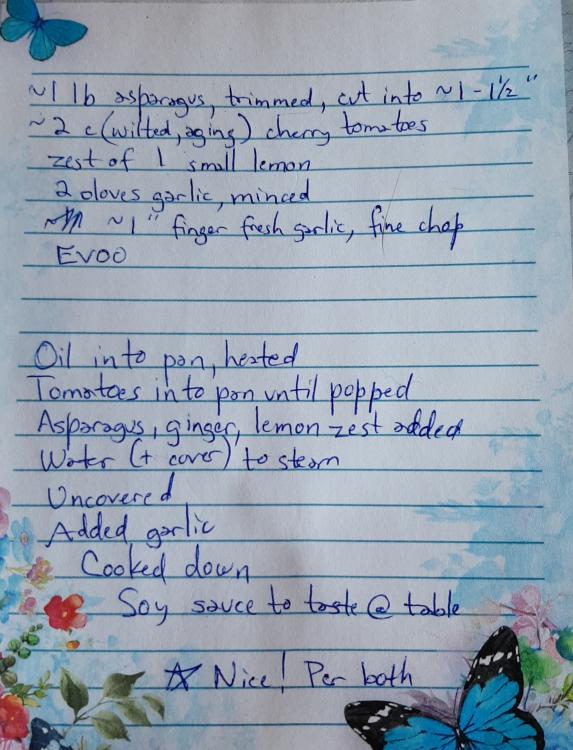 ~1 lb asparagus, trimmed, cut into ~1-1½"
~2 c (wilted, aging) cherry tomatoes
zest of 1 small lemon
2 cloves garlic, minced
~1" finger fresh garlic, fine chop
EVOO
Oil into pan, heated
Tomatoes into pan until popped
Asparagus, ginger, lemon zest added
Water (+ cover) to steam
Uncovered
Added garlic
Cooked down
Soy sauce to taste @ table
☆ Nice! Per both